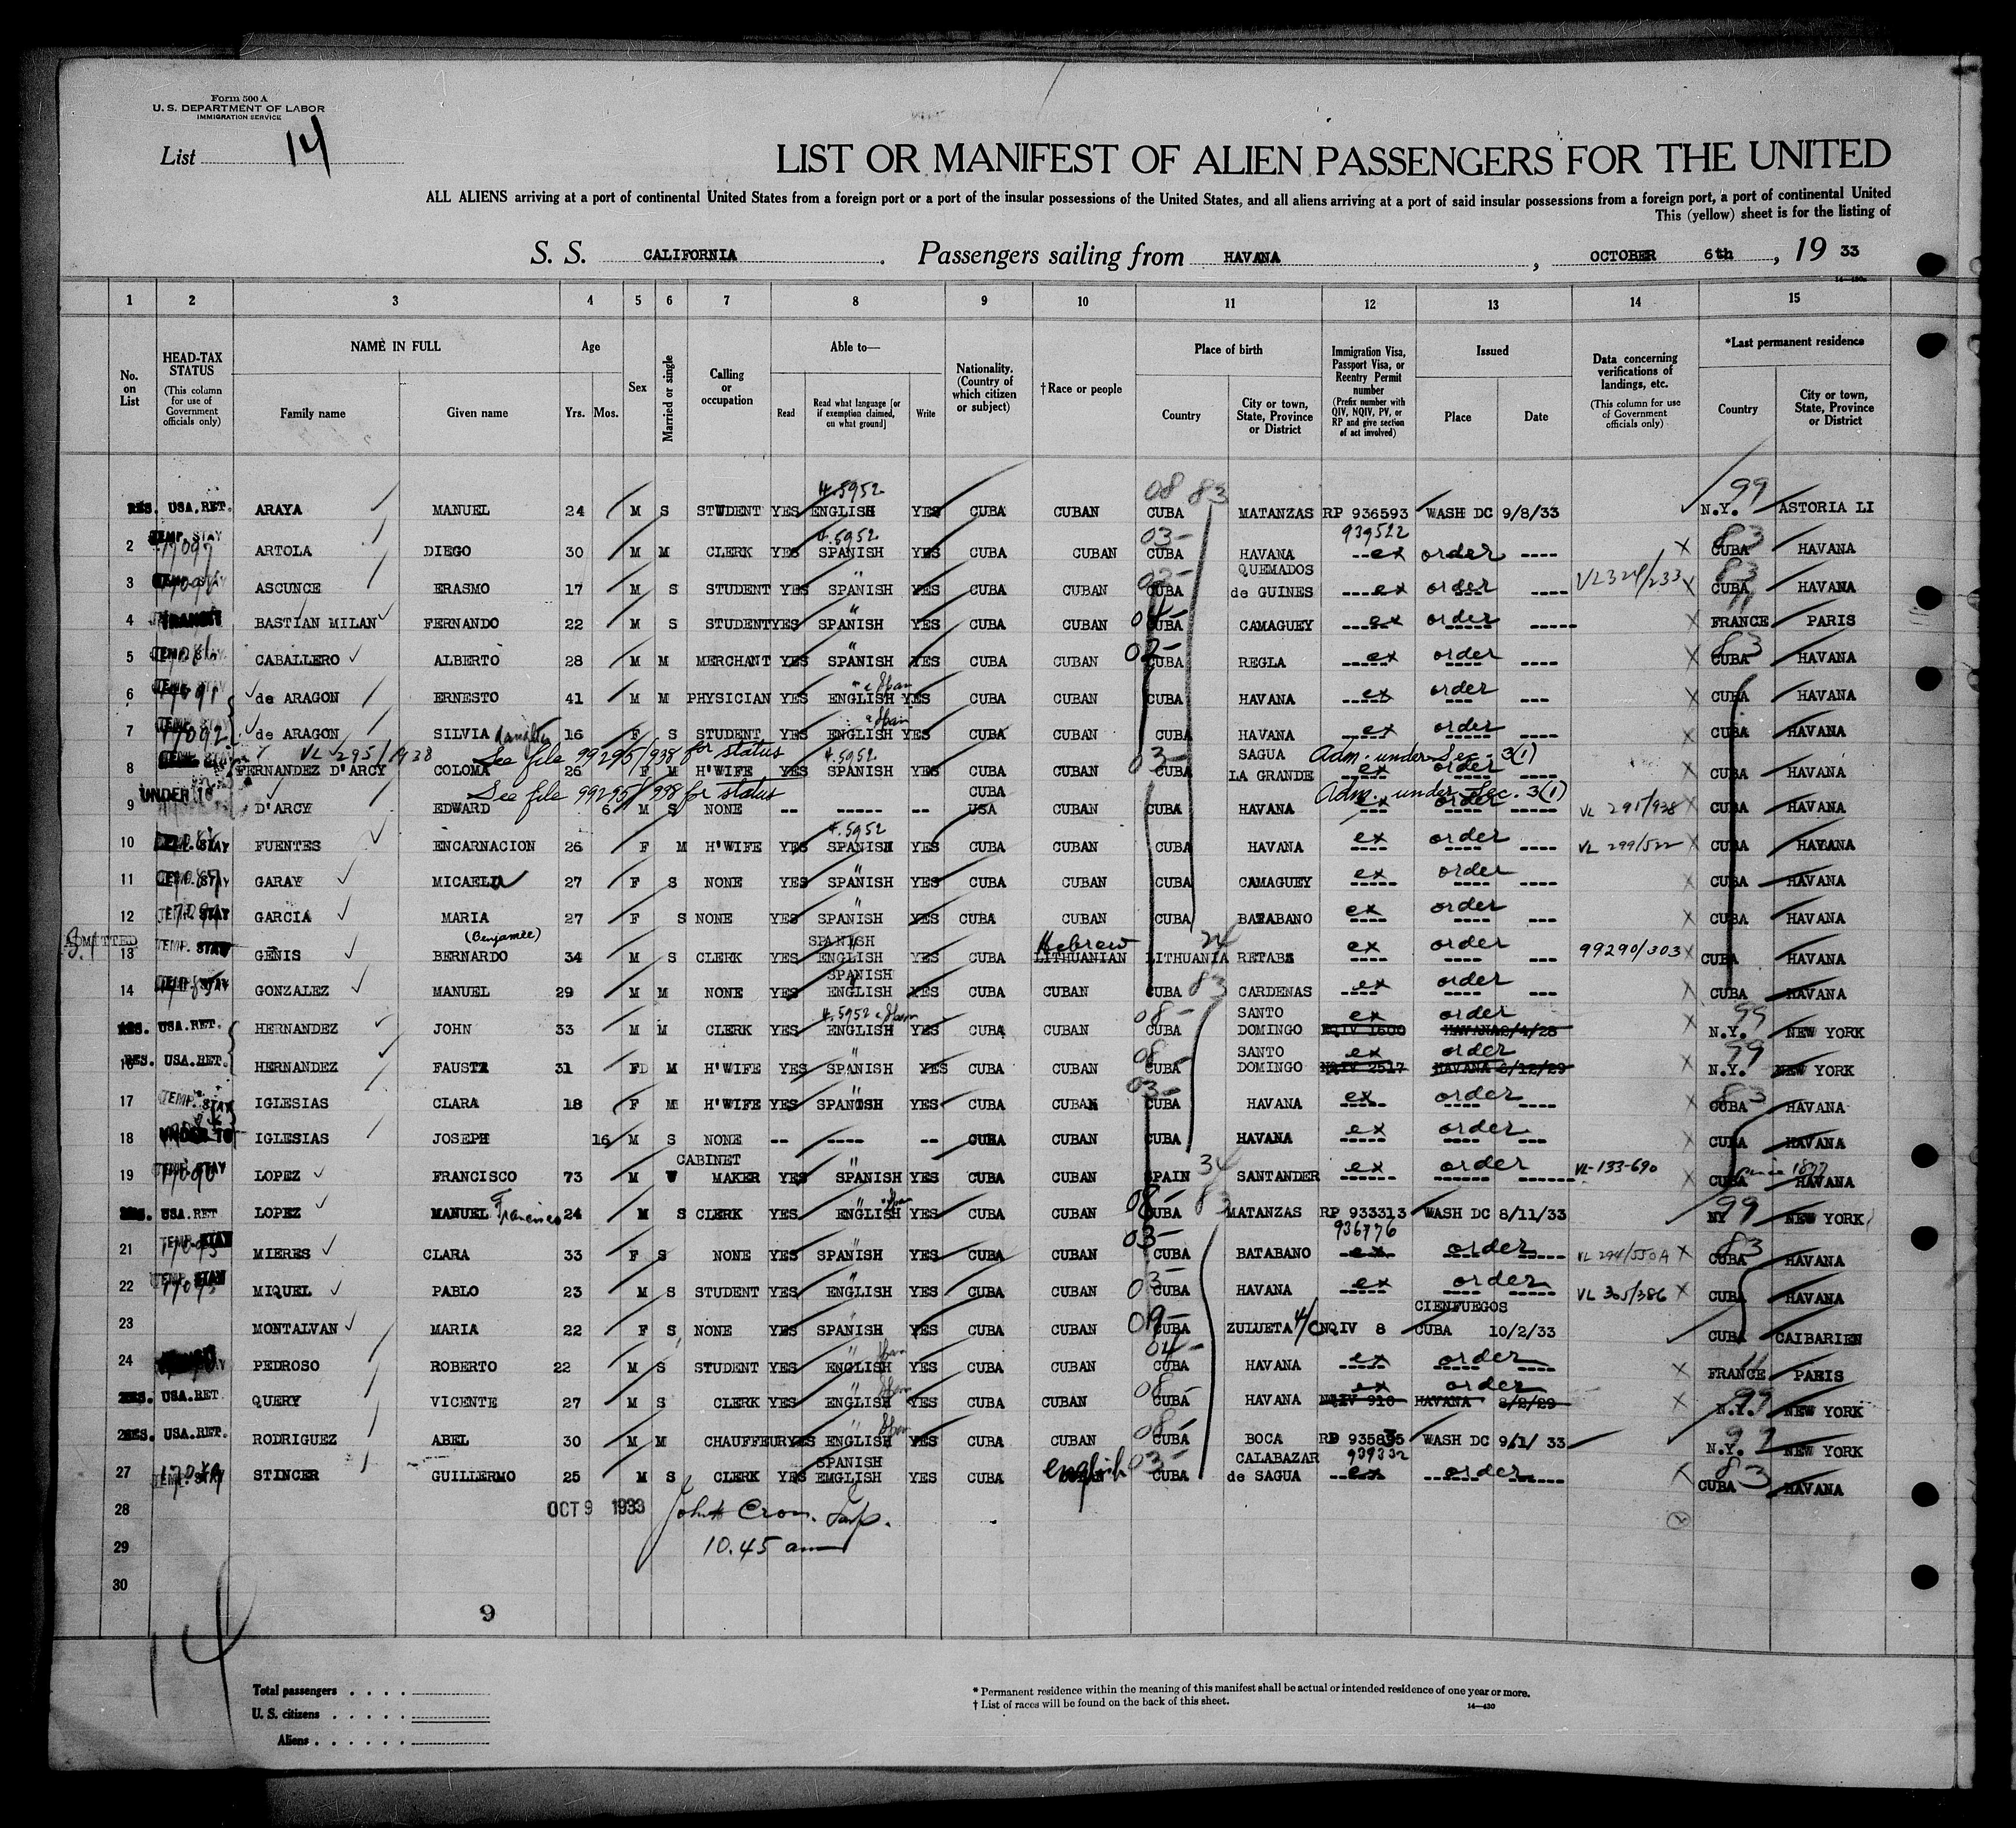 Form 500 A
U. S. DEPARTMENT OF LABOR
IMMIGRATION SERVICE
List 14
LIST OR MANIFEST OF ALIEN PASSENGERS FOR THE UNITED
ALL ALIENS arriving at a port of continental United States from a foreign port or a port of the insular possessions of the United States, and all aliens arriving at a port of said insular possessions from a foreign port, a port of continental United
This (yellow) sheet is for the listing of
S. S. CALIFORNIA. Passengers sailing from HAVANA, OCTOBER 6th, 19 33
1 2 3 4 5 6 7 8 9 10 11 12 13 14 15
No. on List
HEAD-TAX STATUS (This column for use of Government officials only)
NAME IN FULL Family name Given name
Age Yrs. Mos.
Sex
Married or single
Calling or occupation
Able to— Read Read what language [or if exemption claimed, on what ground] Write
Nationality. (Country of which citizen or subject)
†Race or people
Place of birth Country City or town, State, Province or District
Immigration Visa, Passport Visa, or Reentry Permit number (Prefix number with QIV, NQIV, PV, or RP and give section of act involved)
Issued Place Date
Data concerning verifications of landings, etc. (This column for use of Government officials only)
*Last permanent residence Country City or town, State, Province or District
4.5952 08 83 99
RES. USA.RET. ARAYA MANUEL 24 M S STUDENT YES ENGLISH YES CUBA CUBAN CUBA MATANZAS RP 936593 WASH DC 9/8/33 N.Y. ASTORIA LI
4.5952 03- 939522 83
2 TEMP. STAY 17097 ARTOLA DIEGO 30 M M CLERK YES SPANISH YES CUBA CUBAN CUBA HAVANA --ex order ---- X CUBA HAVANA
QUEMADOS VL324/233 83
3 ASCUNCE ERASMO 17 M S STUDENT YES " SPANISH YES CUBA CUBAN CUBA de GUINES ----ex order ---- X CUBA HAVANA
4 TRANSIT BASTIAN MILAN FERNANDO 22 M S STUDENT YES " SPANISH YES CUBA CUBAN 04- CUBA CAMAGUEY ----ex order ----- X 11 FRANCE PARIS
5 TEMP. STAY CABALLERO ALBERTO 28 M M MERCHANT YES " SPANISH YES CUBA CUBAN 02- CUBA REGLA ----ex order ---- X 83 CUBA HAVANA
6 17091 de ARAGON ERNESTO 41 M M PHYSICIAN YES " & Span ENGLISH YES CUBA CUBAN CUBA HAVANA ---ex order --- X CUBA HAVANA
7 TEMP. STAY 17092 de ARAGON SILVIA daughter 16 F S STUDENT YES " & Span ENGLISH YES CUBA CUBAN CUBA HAVANA ---ex order ---- X CUBA HAVANA
VL 295/938 See file 99295/938 for status 4.5952 03- SAGUA Adm. under Sec. 3(1)
8 FERNANDEZ D'ARCY COLOMA 26 F M H'WIFE YES SPANISH YES CUBA CUBAN CUBA LA GRANDE ex order ---- X CUBA HAVANA
UNDER 16 See file 99295/998 for status CUBA Adm. under Sec. 3(1)
9 D'ARCY EDWARD 6 M S NONE -- ----- -- USA CUBAN CUBA HAVANA ex order ---- VL 295/938 X CUBA HAVANA
4.5952
10 TEMP. STAY FUENTES ENCARNACION 26 F M H'WIFE YES SPANISH YES CUBA CUBAN CUBA HAVANA ex order ---- VL 299/522 X CUBA HAVANA
11 TEMP. STAY GARAY MICAELA 27 F S NONE YES " SPANISH YES CUBA CUBAN CUBA CAMAGUEY ex order ---- X CUBA HAVANA
12 TEMP. STAY GARCIA MARIA 27 F S NONE YES SPANISH YES CUBA CUBAN CUBA BATABANO ex order --- X CUBA HAVANA
ADMITTED (Benjamee) SPANISH Hebrew 24
13 TEMP. STAY GENIS BERNARDO 34 M S CLERK YES ENGLISH YES CUBA LITHUANIAN LITHUANIA RETABS ex order ---- 99290/303 X CUBA HAVANA
SPANISH 83
14 TEMP. STAY GONZALEZ MANUEL 29 M M NONE YES ENGLISH YES CUBA CUBAN CUBA CARDENAS ex order ---- X CUBA HAVANA
4.5952 & Span 08- SANTO ex order 99
RES. USA.RET. HERNANDEZ JOHN 33 M M CLERK YES ENGLISH YES CUBA CUBAN CUBA DOMINGO NQIV 1600 HAVANA 2/4/28 X N.Y. NEW YORK
" 08- SANTO ex order 99
RES. 16 USA.RET. HERNANDEZ FAUSTA 31 F M H'WIFE YES SPANISH YES CUBA CUBAN CUBA DOMINGO NQIV 2517 HAVANA 8/12/29 X N.Y. NEW YORK
17 TEMP. STAY IGLESIAS CLARA 18 F M H'WIFE YES " SPANISH YES CUBA CUBAN 03- CUBA HAVANA ex order ---- X 83 CUBA HAVANA
18 UNDER 16 IGLESIAS JOSEPH 16 M S NONE -- ---- -- CUBA CUBAN CUBA HAVANA ex order --- X CUBA HAVANA
CABINET
19 TEMP. STAY 17090 LOPEZ FRANCISCO 73 M W MAKER YES " SPANISH YES CUBA CUBAN SPAIN 34 SANTANDER ex order ------ VL-133-690 X CUBA since 1877 HAVANA
RES. USA.RET LOPEZ MANUEL Francisco 24 M S CLERK YES " & Span ENGLISH YES CUBA CUBAN 08- CUBA 83 MATANZAS RP 933313 WASH DC 8/11/33 NY 99 NEW YORK
03- 936776
21 TEMP. STAY MIERES CLARA 33 F S NONE YES " SPANISH YES CUBA CUBAN CUBA BATABANO --ex order ----- VL 294/550A X 83 CUBA HAVANA
22 TEMP. STAY MIQUEL PABLO 23 M S STUDENT YES " ENGLISH YES CUBA CUBAN 03- CUBA HAVANA ex order ----- VL 305/386 X CUBA HAVANA
CIENFUEGOS
23 MONTALVAN MARIA 22 F S NONE YES SPANISH YES CUBA CUBAN 09- CUBA ZULUETA 4/C NQIV 8 CUBA 10/2/33 CUBA CAIBARIEN
24 PEDROSO ROBERTO 22 M S STUDENT YES " Span ENGLISH YES CUBA CUBAN 04- CUBA HAVANA ex order ---- X 11 FRANCE PARIS
RES. USA.RET QUERY VICENTE 27 M S CLERK YES " Span ENGLISH YES CUBA CUBAN 08- CUBA HAVANA ex order NQIV 910 HAVANA 8/2/29 X 99 N.Y. NEW YORK
RES. USA.RET. RODRIGUEZ ABEL 30 M M CHAUFFEUR YES " Span ENGLISH YES CUBA CUBAN 08- CUBA BOCA RP 935895 WASH DC 9/1/ 33 N.Y. 99 NEW YORK
SPANISH CALABAZAR 939332
27 TEMP. STAY STINCER GUILLERMO 25 M S CLERK YES EMGLISH YES CUBA english 03- CUBA de SAGUA --ex order ----- X 83 CUBA HAVANA
28 OCT 9 1933 John Cron. Insp.
29 10.45 am
30
9
14
Total passengers
U. S. citizens
Aliens
* Permanent residence within the meaning of this manifest shall be actual or intended residence of one year or more.
† List of races will be found on the back of this sheet.
14—430